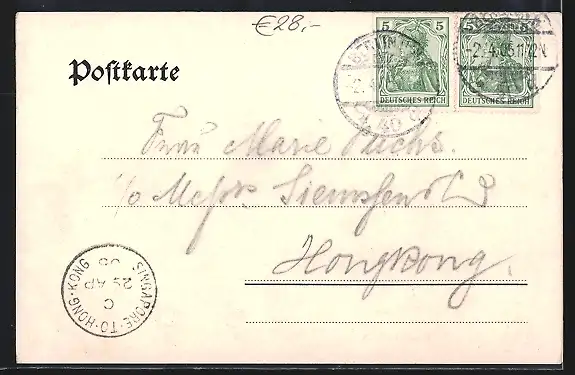 €28,-
5 5
DEUTSCHES REICH DEUTSCHES REICH
BERLIN
-2.4.05.11-12V.
40
Postkarte
Frau Marie Fuchs.
c/o Messrs Siemssen & Co
Hongkong.
SINGAPORE·TO·HONG·KONG
C
29 AP
05